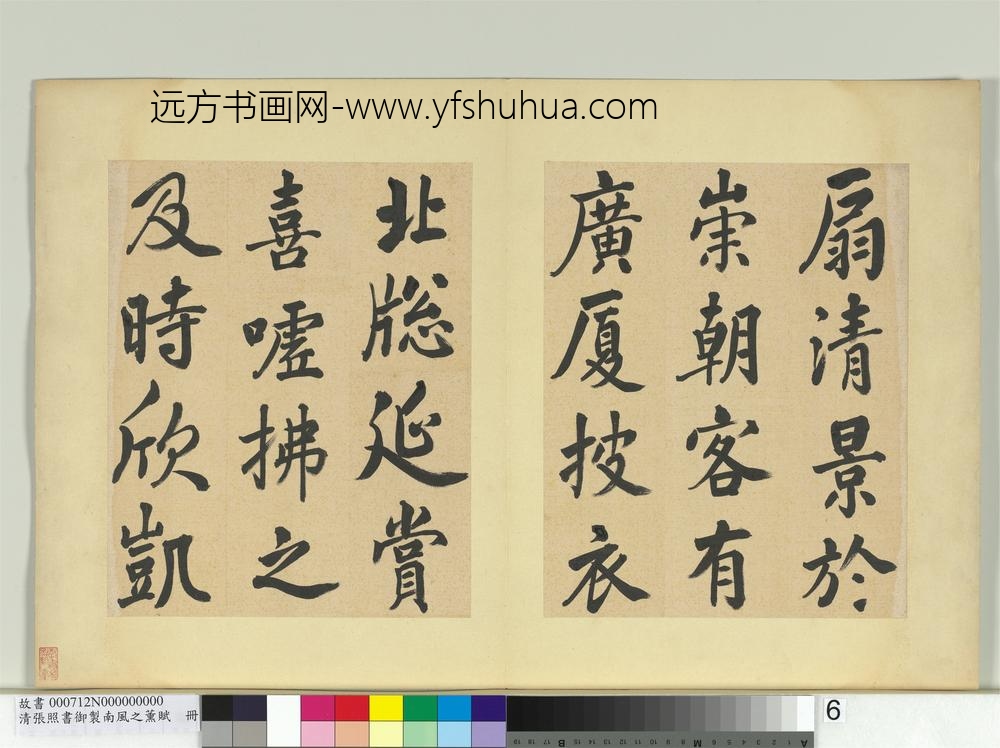 远方书画网-www.yfshuhua.com
扇清景於
崇朝客有
廣厦披衣
北牕延賞
喜嘘拂之
及時欣凱
故書 000712N000000000
清張照書御製南風之薰賦 冊
6
A
M
B